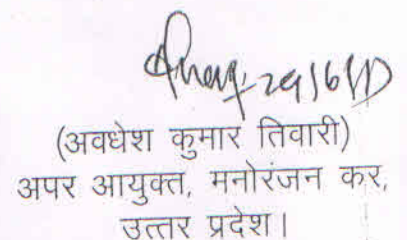 29/6/17
(अवधेश कुमार तिवारी)
अपर आयुक्त, मनोरंजन कर,
उत्तर प्रदेश।